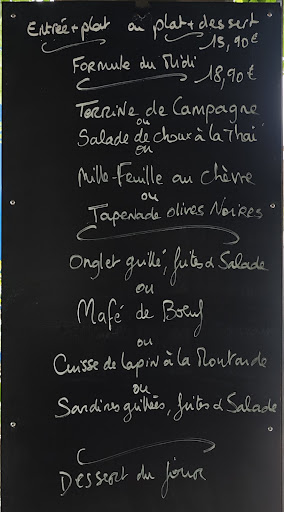 Entrée + plat ou plat + dessert
15,90€
Formule du Midi
18,90€
Terrine de Campagne
ou
Salade de choux à la Thaï
ou
Mille-Feuille au chèvre
ou
Tapenade olives Noires
Onglet grillé, frites & Salade
ou
Mafé de Bœuf
ou
Cuisse de lapin à la Moutarde
ou
Sardines grillées, frites & Salade
Dessert du jour